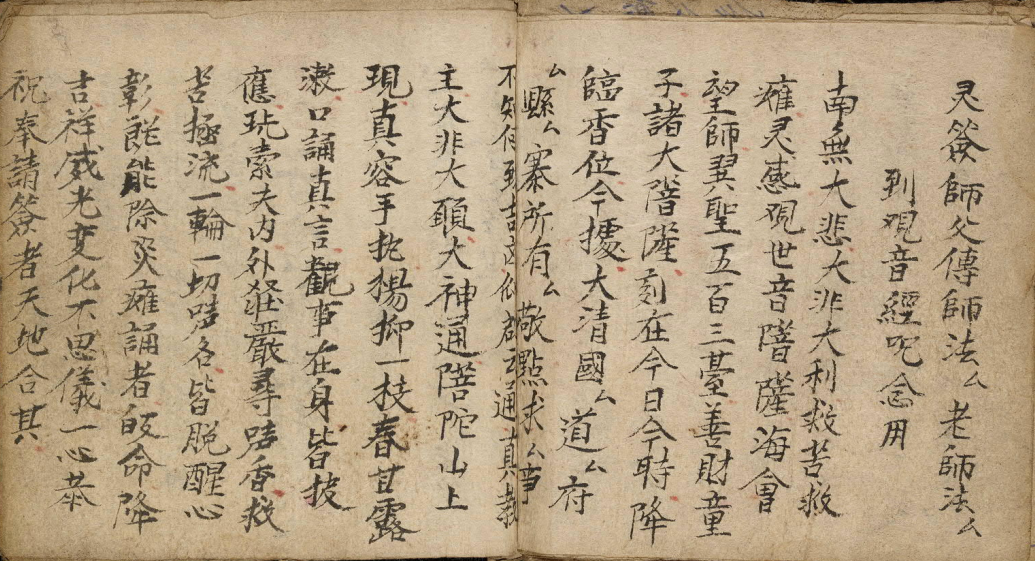 灵簽師父傳師法厶老師法厶
到观音經呪念用
南無大悲大非大利救苦救
癕灵感观世音䔒薩海會
望師巽聖五百三臺善財童
子諸大䔒薩刻在今日今時降
臨香位今據大清國厶道厶府
厶縣厶寨所有厶敬㸃求厶事
不知何 吉 通真教
主大非大願大神通普陀山上
現真容手执楊抑一枝春甘露
漱口誦真言觀事在身皆披
應玩索夫内外莊嚴尋㖓香救
苦極流一輪一切㖓名皆脱醒心
彰能能除災癕誦者皈命降
吉祥威光变化不思儀一心恭
祝奉請簽者天地合其